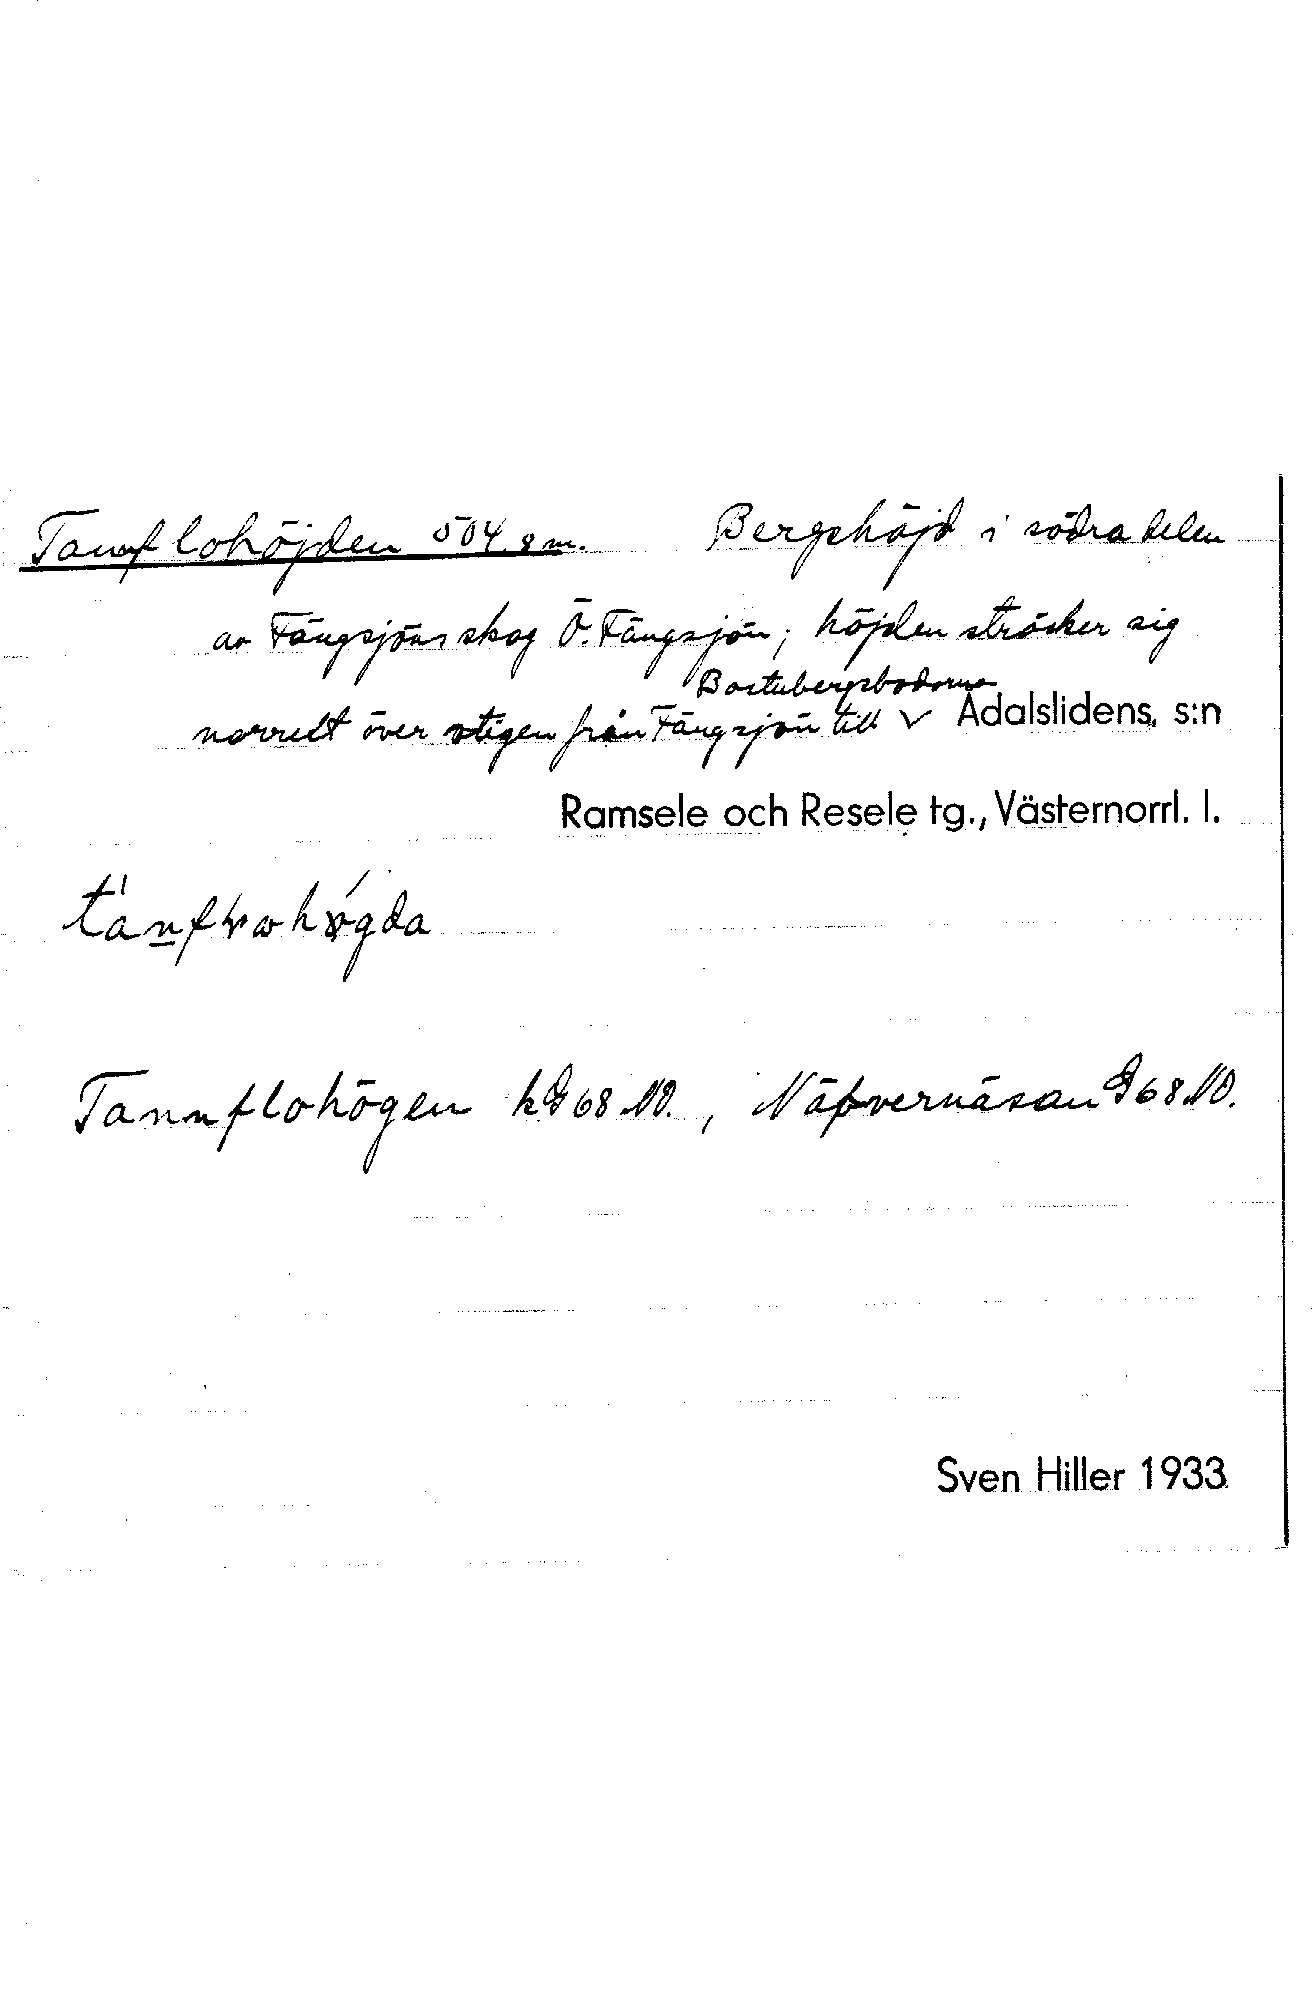 Tannflohöjden 504.8 m. Bergshöjd i södra delen
av Fängsjöns skog Ö. Fängsjön; höjden sträcker sig
Bastubergsbodarna
norrut över stigen från Fängsjön till V Ådalslidens, s:n
Ramsele och Resele tg., Västernorrl. l.
Tannflohögen kG 68 NO., Näfvernäsan G 68 NO.
Sven Hiller 1933